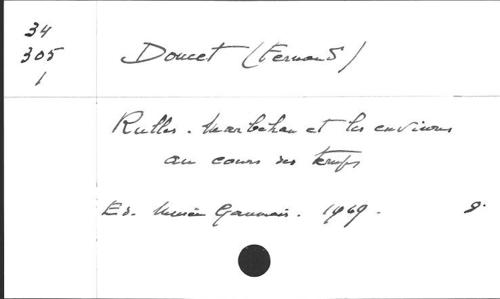 34
305
1
Doucet (Fernand)
Rulles. Marbehan et les environs
au cours des temps
Ed. Musée Gaumais. 1969.
8°